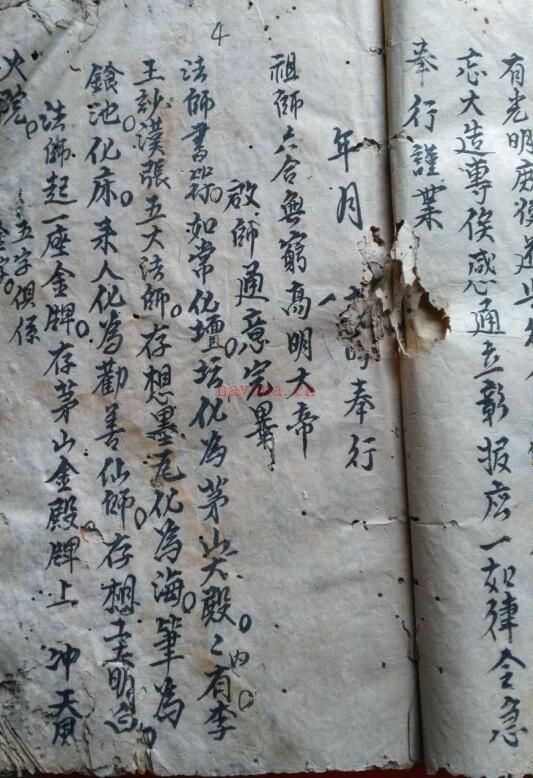 有光明
忘大造專俟感通立彰报应一如律令急
奉行謹業
年月
時奉行
祖師六合無窮高明大帝
啟師通意完畢
法師書符如常化壇坛化為茅山大殿。〻内。有李
王钞漢張五大法師。存想墨瓦化為海。筆為
鎗池化床。来人化為勸善仙師。存想主明白。
法師起一座金牌。存茅山金殿牌上 冲天風
火院。五字俱係
4